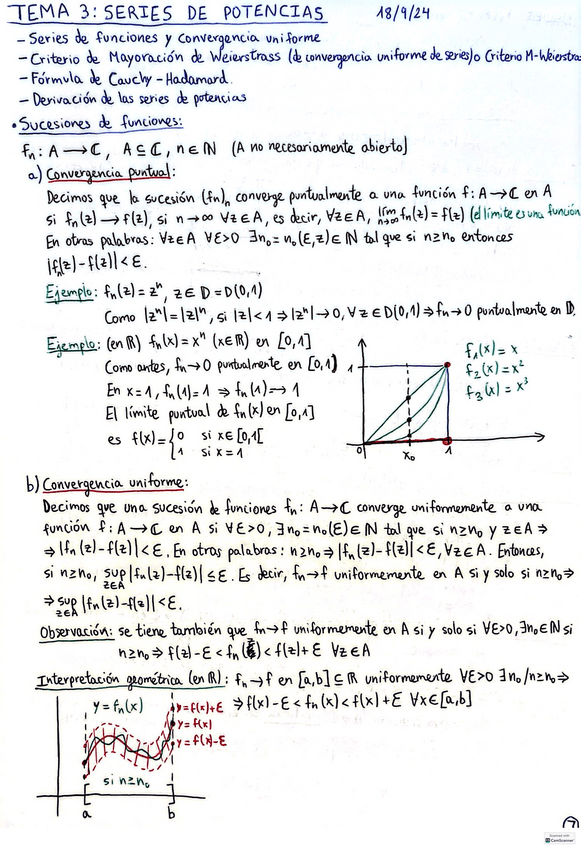 TEMA 3: SERIES DE POTENCIAS 18/9/24
- Series de funciones y convergencia uniforme
- Criterio de Mayoración de Weierstrass (de convergencia uniforme de series) o Criterio M-Weierstra
- Fórmula de Cauchy-Hadamard.
- Derivación de las series de potencias
• Sucesiones de funciones:
fₙ: A → ℂ, A ⊆ ℂ, n ∈ ℕ (A no necesariamente abierto)
a) Convergencia puntual:
Decimos que la sucesión (fₙ)ₙ converge puntualmente a una función f: A → ℂ en A
si fₙ(z) → f(z), si n → ∞ ∀z ∈ A, es decir, ∀z ∈ A, lím n→∞ fₙ(z) = f(z) (el límite es una función
En otras palabras: ∀z ∈ A ∀ε > 0 ∃n₀ = n₀(ε, z) ∈ ℕ tal que si n ≥ n₀ entonces
|fₙ(z) - f(z)| < ε.
Ejemplo: fₙ(z) = zⁿ, z ∈ 𝔻 = D(0,1)
Como |zⁿ| = |z|ⁿ, si |z| < 1 ⇒ |zⁿ| → 0, ∀z ∈ D(0,1) ⇒ fₙ → 0 puntualmente en 𝔻.
Ejemplo: (en ℝ) fₙ(x) = xⁿ (x ∈ ℝ) en [0,1]
Como antes, fₙ → 0 puntualmente en [0,1)
En x = 1, fₙ(1) = 1 ⇒ fₙ(1) → 1
El límite puntual de fₙ(x) en [0,1]
es f(x) = { 0 si x ∈ [0,1[
1 si x = 1
f₁(x) = x
f₂(x) = x²
f₃(x) = x³
1
0 x₀ 1
b) Convergencia uniforme:
Decimos que una sucesión de funciones fₙ: A → ℂ converge uniformemente a una
función f: A → ℂ en A si ∀ε > 0, ∃n₀ = n₀(ε) ∈ ℕ tal que si n ≥ n₀ y z ∈ A ⇒
⇒ |fₙ(z) - f(z)| < ε. En otras palabras: n ≥ n₀ ⇒ |fₙ(z) - f(z)| < ε, ∀z ∈ A. Entonces,
si n ≥ n₀, sup z∈A |fₙ(z) - f(z)| ≤ ε. Es decir, fₙ → f uniformemente en A si y solo si n ≥ n₀ ⇒
⇒ sup z∈A |fₙ(z) - f(z)| < ε.
Observación: se tiene también que fₙ → f uniformemente en A si y solo si ∀ε > 0, ∃n₀ ∈ ℕ si
n ≥ n₀ ⇒ f(z) - ε < fₙ(z) < f(z) + ε ∀z ∈ A
Interpretación geométrica (en ℝ): fₙ → f en [a,b] ⊆ ℝ uniformemente ∀ε > 0 ∃n₀ / n ≥ n₀ ⇒
⇒ f(x) - ε < fₙ(x) < f(x) + ε ∀x ∈ [a,b]
y = fₙ(x)
y = f(x) + ε
y = f(x)
y = f(x) - ε
si n ≥ n₀
a b
CamScanner